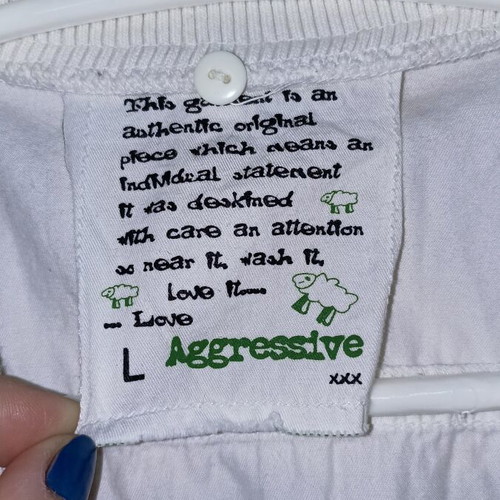 This garment is an
authentic original
piece which means an
individual statement
it was deskined
with care an attention
so near it, wash it,
Love it....
... Love
Aggressive
L
xxx